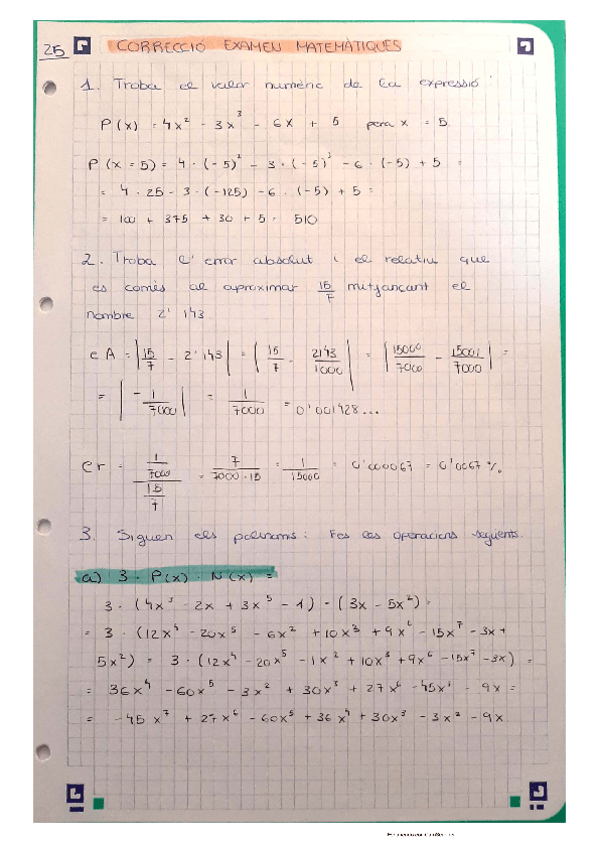 25 CORRECCIÓ EXAMEU MATEMÀTIQUES
1. Troba el valor numèric de la expressió:
P(x) = 4x² - 3x³ - 6x + 5 para x = 5
P(x = 5) = 4 · (-5)² - 3 · (-5)³ - 6 · (-5) + 5 =
= 4 · 25 - 3 · (-125) - 6 · (-5) + 5 =
= 100 + 375 + 30 + 5 = 510
2. Troba l'error absolut i el relatiu que
es comès al aproximar 15/7 mitjançant el
nombre 2'143
eA = |15/7 - 2'143| = |15/7 - 2143/1000| = |15000/7000 - 15001/7000| =
= |-1/7000| = 1/7000 = 0'001428...
er = (1/7000)/(15/7) = 7/(7000·15) = 1/15000 = 0'000067 = 0'0067 %
3. Siguen els polinomis: Fes les operacions següents.
a) 3 · P(x) · N(x) =
3 · (4x³ - 2x + 3x⁵ - 1) · (3x - 5x²) =
= 3 · (12x⁴ - 20x⁵ - 6x² + 10x³ + 9x⁶ - 15x⁷ - 3x +
5x²) = 3 · (12x⁴ - 20x⁵ - 1x² + 10x³ + 9x⁶ - 15x⁷ - 3x) =
= 36x⁴ - 60x⁵ - 3x² + 30x³ + 27x⁶ - 45x⁷ - 9x =
= -45x⁷ + 27x⁶ - 60x⁵ + 36x⁴ + 30x³ - 3x² - 9x